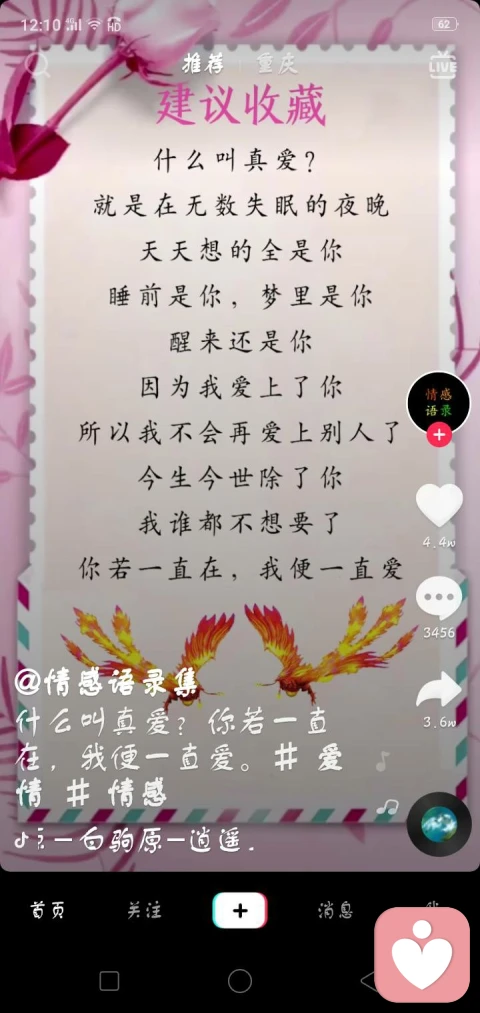 12:10
HD
62
推荐
重庆
LIVE
建议收藏
什么叫真爱？
就是在无数失眠的夜晚
天天想的全是你
睡前是你，梦里是你
醒来还是你
因为我爱上了你
所以我不会再爱上别人了
今生今世除了你
我谁都不想要了
你若一直在，我便一直爱
情感
语录
4.4w
3456
3.6w
@情感语录集
什么叫真爱？你若一直
在，我便一直爱。# 爱
情 # 情感
一白驹原一逍遥.
首页
关注
消息